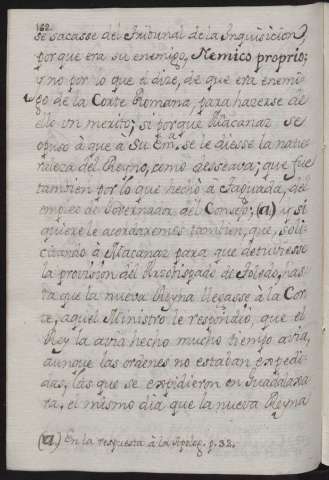 162.
se sacasse del Tribunal de la Inquisicion,
porque era su enemigo, Nemico proprio;
y no por lo que el dize, de que era enemi-
go de la Corte Romana, para hazerse de
ello un merito; si porque Macanaz se
opuso à que a Su Em.ª se le diesse la natu-
raleza del Reyno, como desseava; que fue
tambien por lo que hechò a Taquada, del
empleo de Governador del Consejo; (a) y si
quiere le acordarèmos tambien, que, soli-
citando à Macanaz para que detuviesse
la provision del Arzobispado de Toledo, has-
ta que la nueva Reyna llegasse à la Cor-
te, aquel Ministro le respondiò, que el
Rey la avia hecho mucho tiempo avia,
aunque las ordenes no estaban expedi-
das, las que se expidieron en Guadalaxa-
ra, el mismo dia que la nueva Reyna
(a) En la respuesta à la Apolog. p. 32.